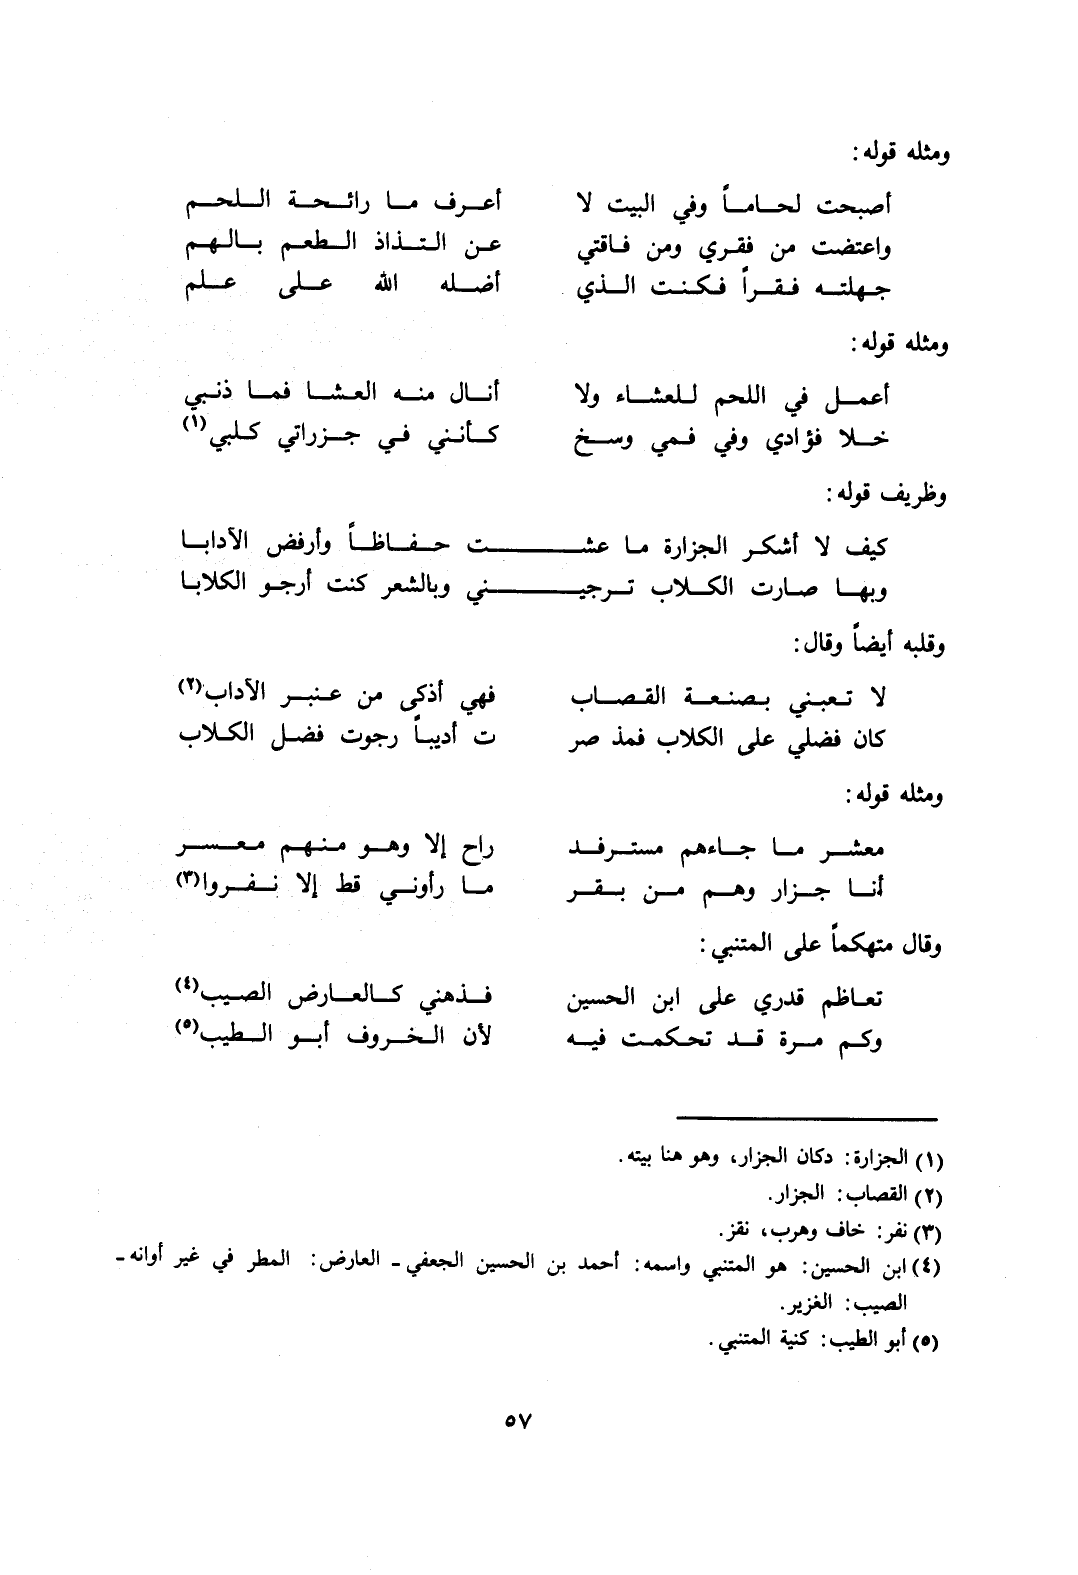 ومثله قوله:
أصبحت لحاماً وفي البيت لا أعرف ما رائحة اللحم
واعتضت من فقري ومن فاقتي عن التذاذ الطعم بالهم
جهلته فقراً فكنت الذي أضله الله على علم
ومثله قوله:
أعمل في اللحم للعشاء ولا أنال منه العشا فما ذنبي
خلا فؤادي وفي فمي وسخ كأنني في جزراتي كلبي(١)
وظريف قوله:
كيف لا أشكر الجزارة ما عشت حفاظاً وأرفض الآدابا
وبها صارت الكلاب ترجيني وبالشعر كنت أرجو الكلابا
وقلبه أيضاً وقال:
لا تعبني بصنعة القصاب فهي أذكى من عنبر الآداب(٢)
كان فضلي على الكلاب فمذ صر ت أديباً رجوت فضل الكلاب
ومثله قوله:
معشر ما جاءهم مسترفد راح إلا وهو منهم معسر
أنا جزار وهم من بقر ما رأوني قط إلا نفروا(٣)
وقال متهكماً على المتنبي:
تعاظم قدري على ابن الحسين فذهني كالعارض الصيب(٤)
وكم مرة قد تحكمت فيه لأن الخروف أبو الطيب(٥)
(١) الجزارة: دكان الجزار، وهو هنا بيته.
(٢) القصاب: الجزار.
(٣) نفر: خاف وهرب، نقز.
(٤) ابن الحسين: هو المتنبي واسمه: أحمد بن الحسين الجعفي ـ العارض: المطر في غير أوانه ـ
الصيب: الغزير.
(٥) أبو الطيب: كنية المتنبي.
٥٧